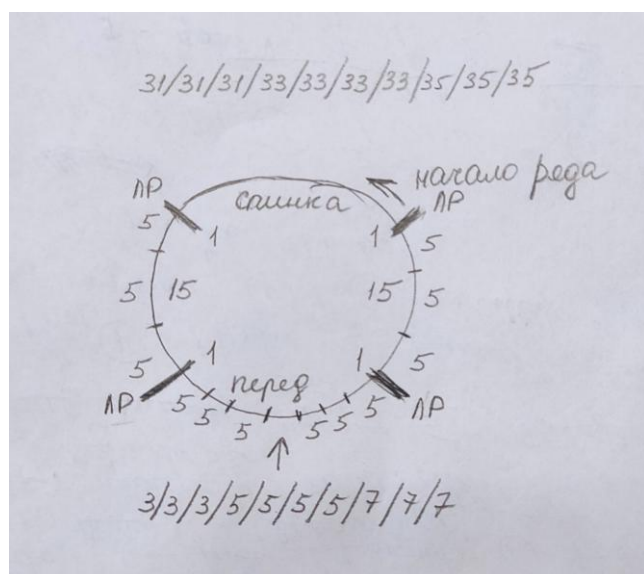 31/31/31/33/33/33/33/35/35/35
начало реда
ЛР ЛР
5 спинка
1 1 5
5 15 15 5
5 1 1 5
перед
ЛР 5 5 5 5 5 5 ЛР
3/3/3/5/5/5/5/7/7/7